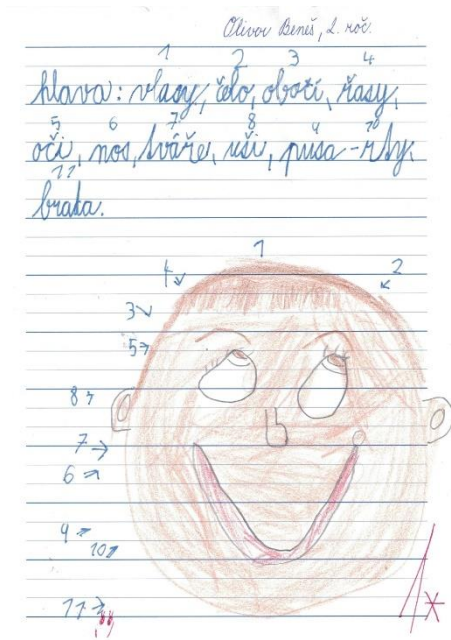 Olivor Beneš, 2. roč.
1 2 3 4
hlava: vlasy, čelo, obočí, řasy,
5 6 7 8 9 10
oči, nos, tváře, uši, pusa - rty,
11
brada.
1
4 2
3
5
8
7
6
9
10
11